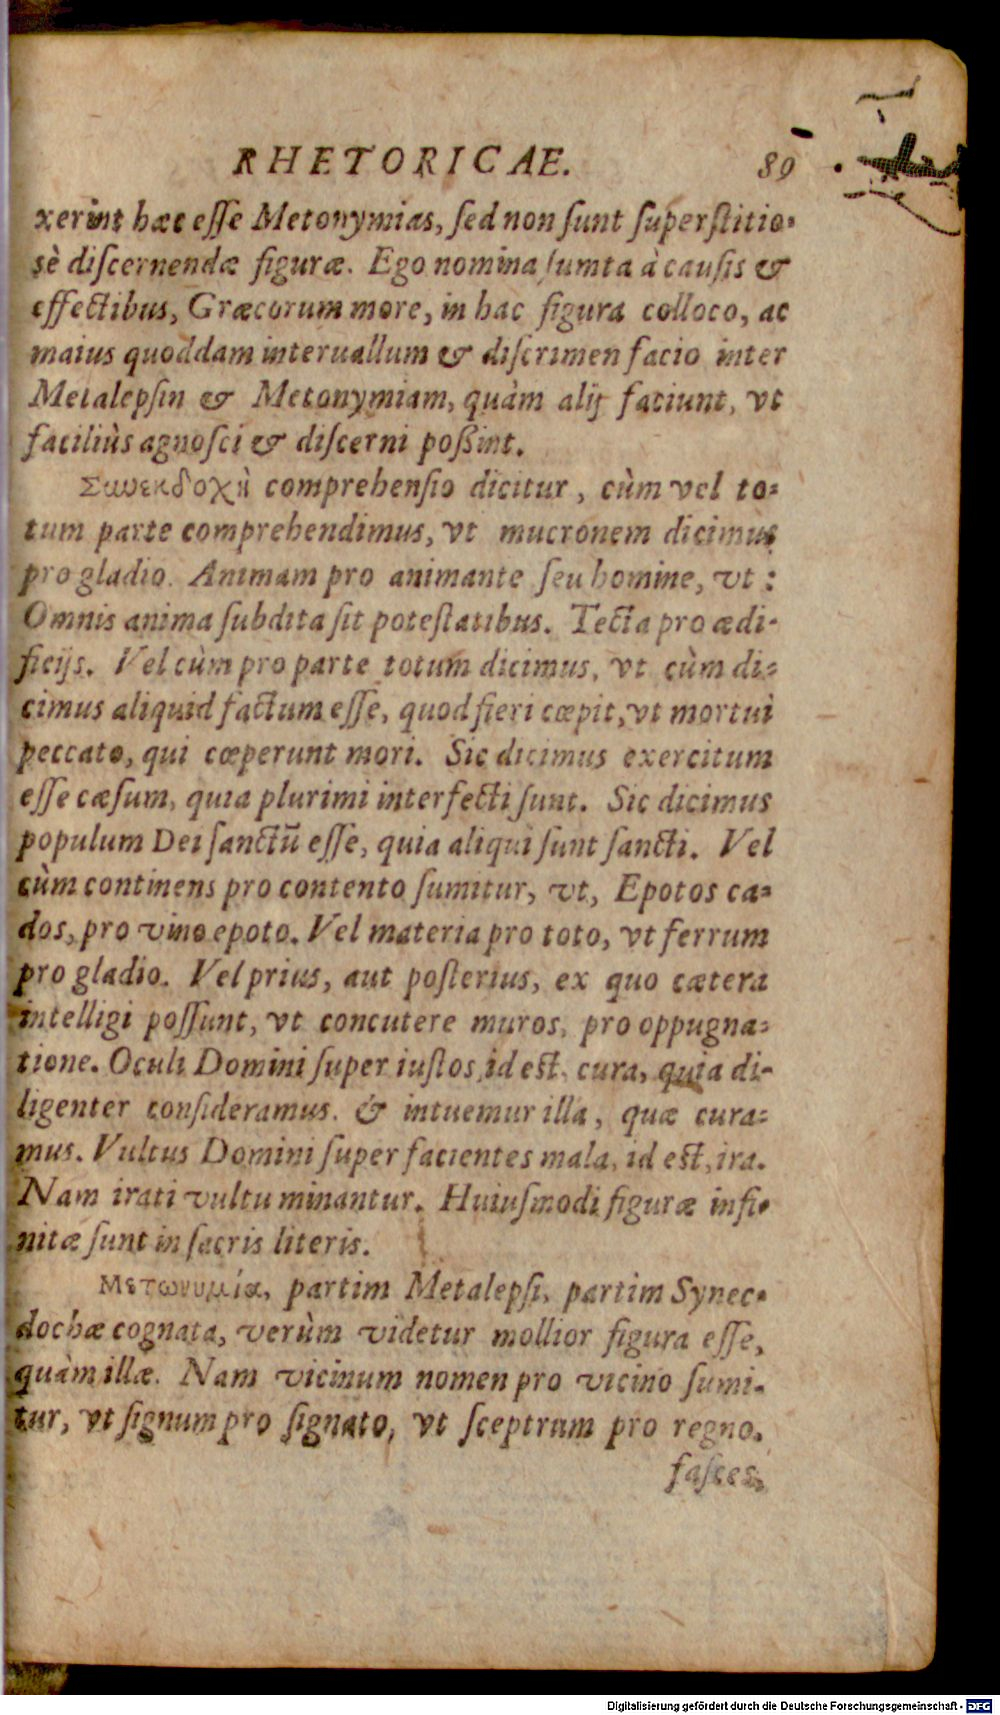 RHETORICAE. 89
xerint hæc eſſe Metonymias, ſed non ſunt ſuperſtitio-
sè diſcernendæ figuræ. Ego nomina ſumta à cauſis &
effectibus, Græcorum more, in hac figura colloco, ac
maius quoddam interuallum & diſcrimen facio inter
Metalepſin & Metonymiam, quàm alij faciunt, vt
faciliùs agnoſci & diſcerni poßint.
Συνεκδοχὴ comprehenſio dicitur, cùm vel to-
tum parte comprehendimus, vt mucronem dicimus
pro gladio. Animam pro animante ſeu homine, vt:
Omnis anima ſubdita ſit poteſtatibus. Tecta pro ædi-
ficijs. Vel cùm pro parte totum dicimus, vt cùm di-
cimus aliquid factum eſſe, quod fieri cœpit, vt mortui
peccato, qui cœperunt mori. Sic dicimus exercitum
eſſe cæſum, quia plurimi interfecti ſunt. Sic dicimus
populum Dei ſanctū eſſe, quia aliqui ſunt ſancti. Vel
cùm continens pro contento ſumitur, vt, Epotos ca-
dos, pro vino epoto. Vel materia pro toto, vt ferrum
pro gladio. Vel prius, aut poſterius, ex quo cætera
intelligi poſſunt, vt concutere muros, pro oppugna-
tione. Oculi Domini ſuper iuſtos, id eſt, cura, quia di-
ligenter conſideramus. & intuemur illa, quæ cura-
mus. Vultus Domini ſuper facientes mala, id eſt, ira.
Nam irati vultu minantur. Huiuſmodi figuræ infi-
nitæ ſunt in ſacris literis.
Μετωνυμία, partim Metalepſi, partim Synec-
dochæ cognata, verùm videtur mollior figura eſſe,
quàm illæ. Nam vicinum nomen pro vicino ſumi-
tur, vt ſignum pro ſignato, vt ſceptrum pro regno.
faſces,
Digitalisierung gefördert durch die Deutsche Forschungsgemeinschaft - DFG